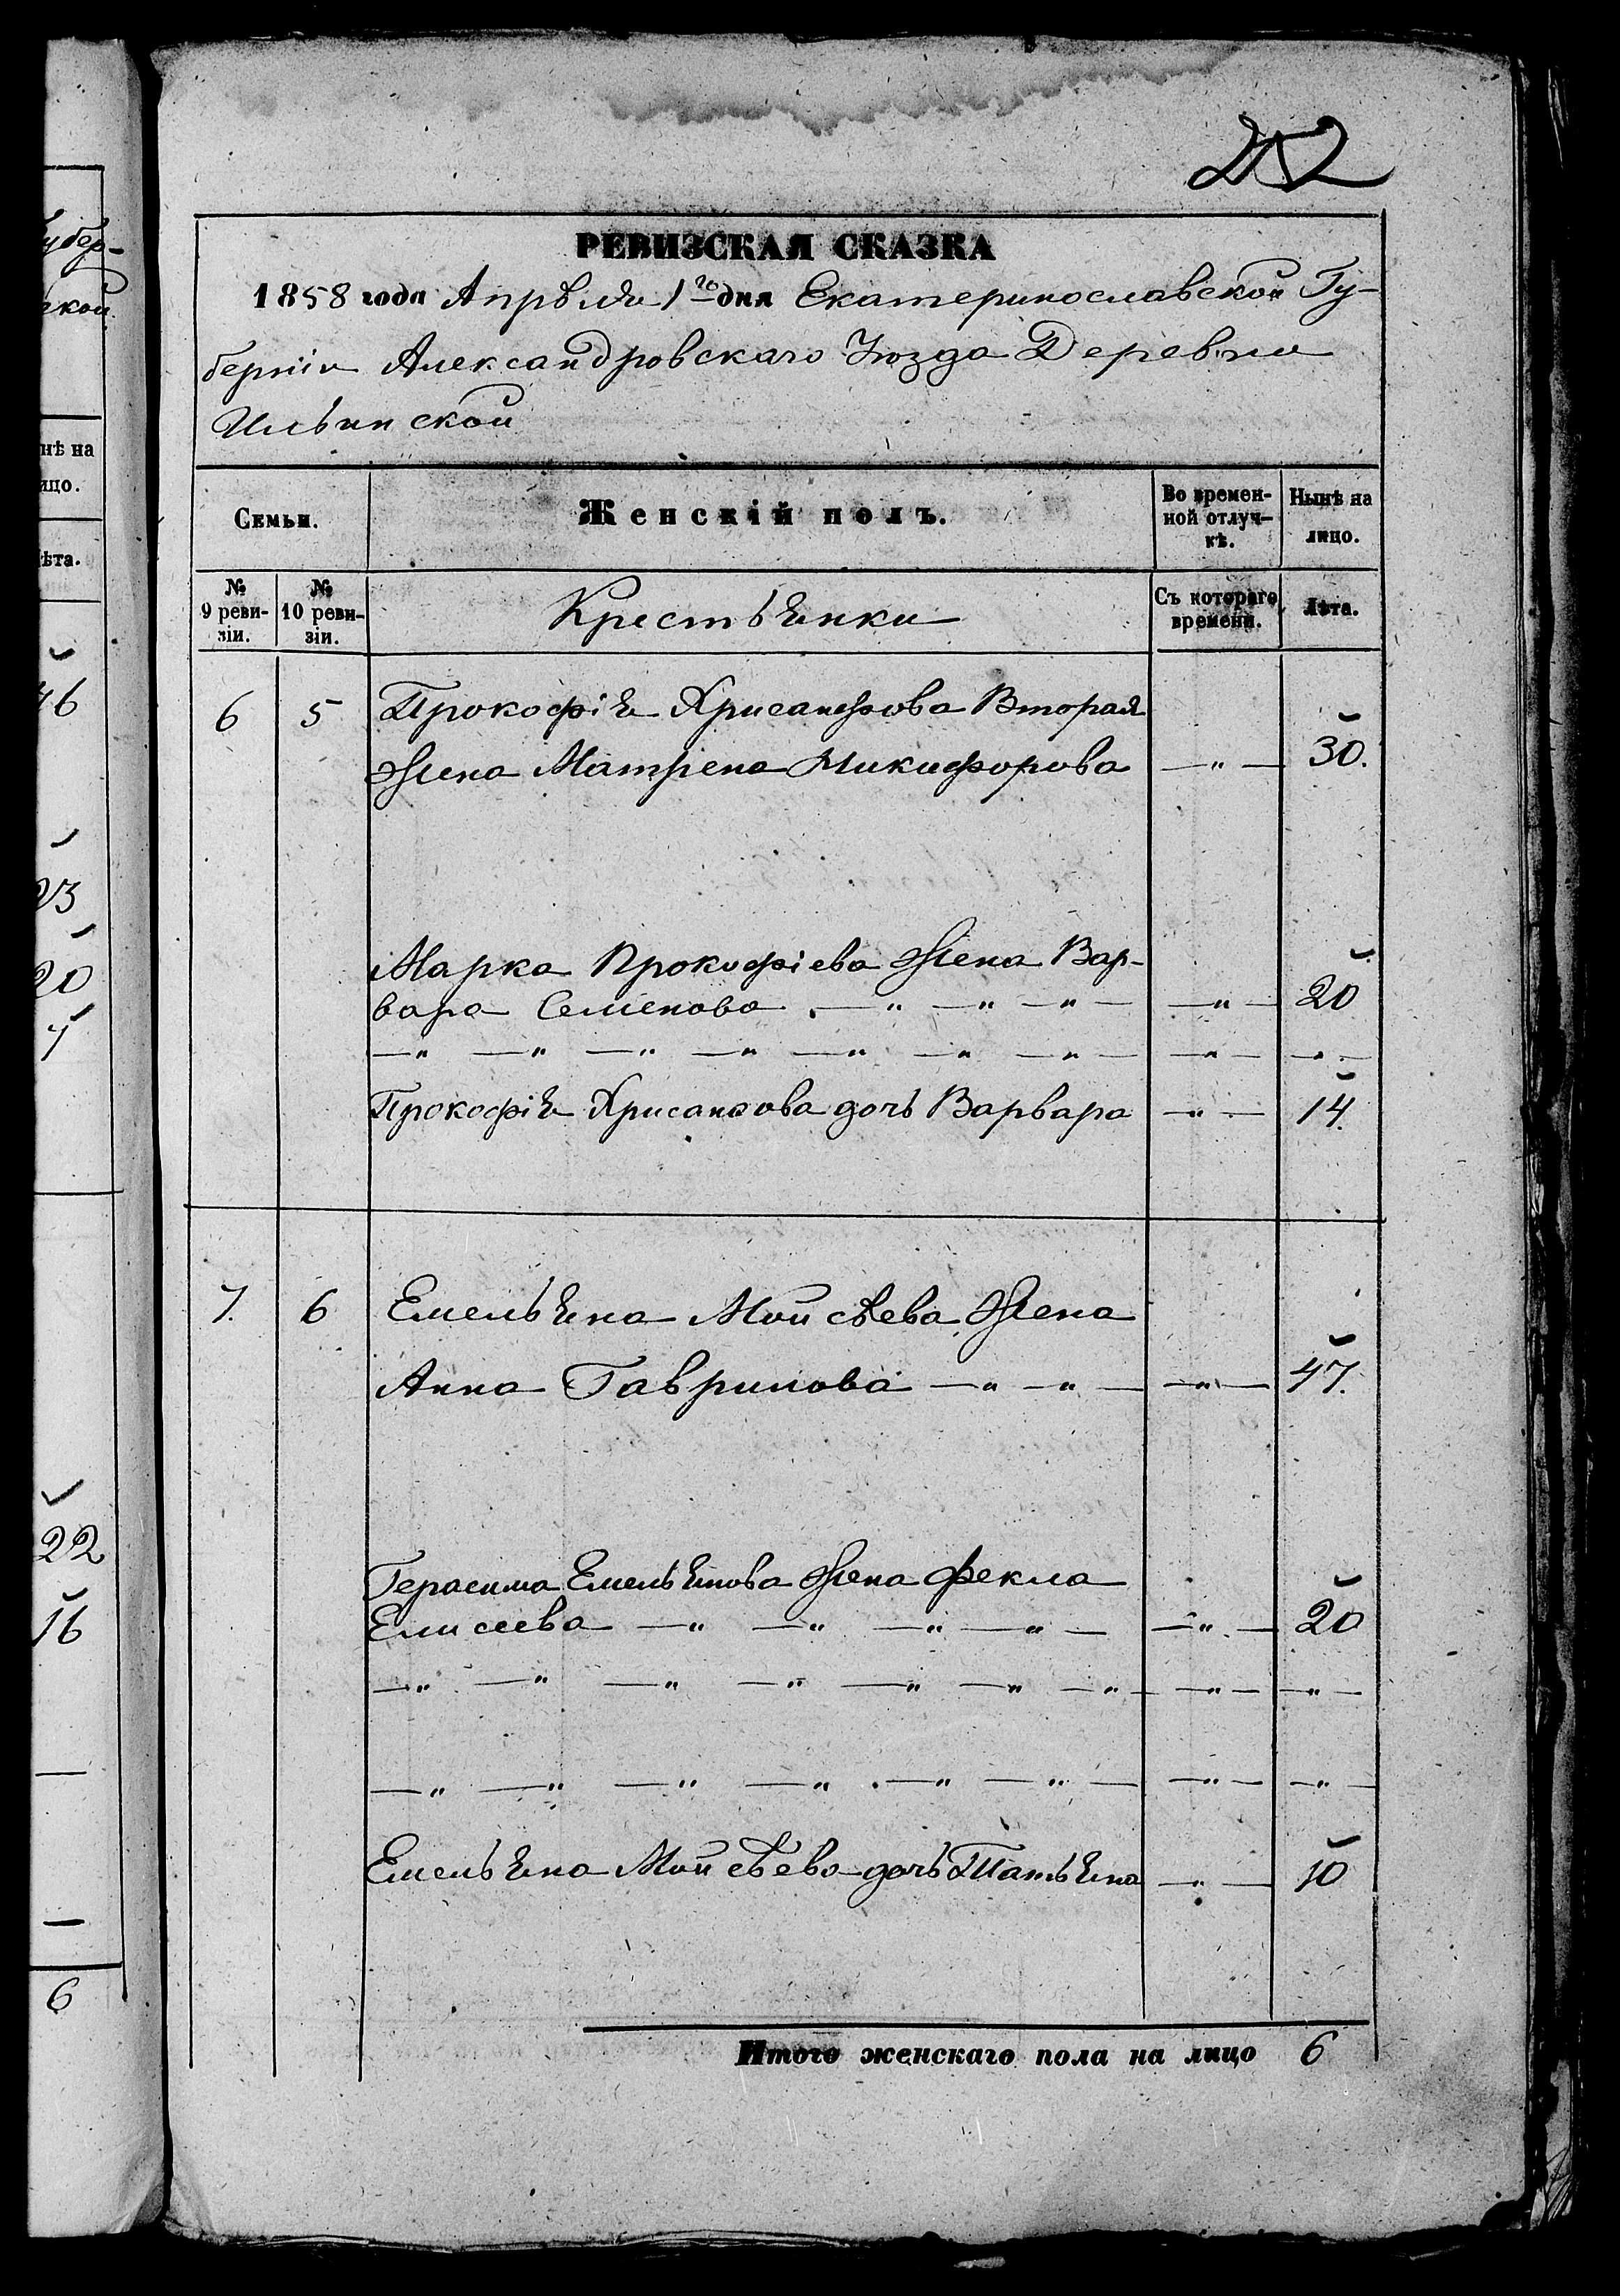 убер-
ской
нѣ на
ицо.
ѣта.
46
23
20
7
22
16
6
252
РЕВИЗСКАЯ СКАЗКА
1858 года Апрѣля 1го дня Екатеринославской Гу-
берніи Александровскаго Уѣзда Деревни
Ильинской
Семьи.
Женскій полъ.
Во времен-
ной отлуч-
кѣ.
Нынѣ на
лицо.
№
9 реви-
зіи.
№
10 реви-
зіи.
Крестьянки
Съ котораго
времени.
Лѣта.
6 5 Прокофія Хрисанфова Вторая
жена Матрена Никифорова —„— 30.
Марка Прокофіева жена Вар-
вара Семенова —„—„—„— —„— 20
—„—„—„—„—„—„—„— —„— —„—
Прокофія Хрисанфова дочь Варвара —„— 14.
7. 6 Емельяна Мойсѣева жена
Анна Гаврилова —„—„— —„— 47.
Герасима Емельянова жена Фекла
Елисеева —„—„—„—„— —„— 20
—„—„—„—„—„—„—„— —„— —„—
—„—„—„—„—„—„— —„— —„—
Емельяна Мойсѣева дочь Татьяна —„— 10
Итого женскаго пола на лицо 6